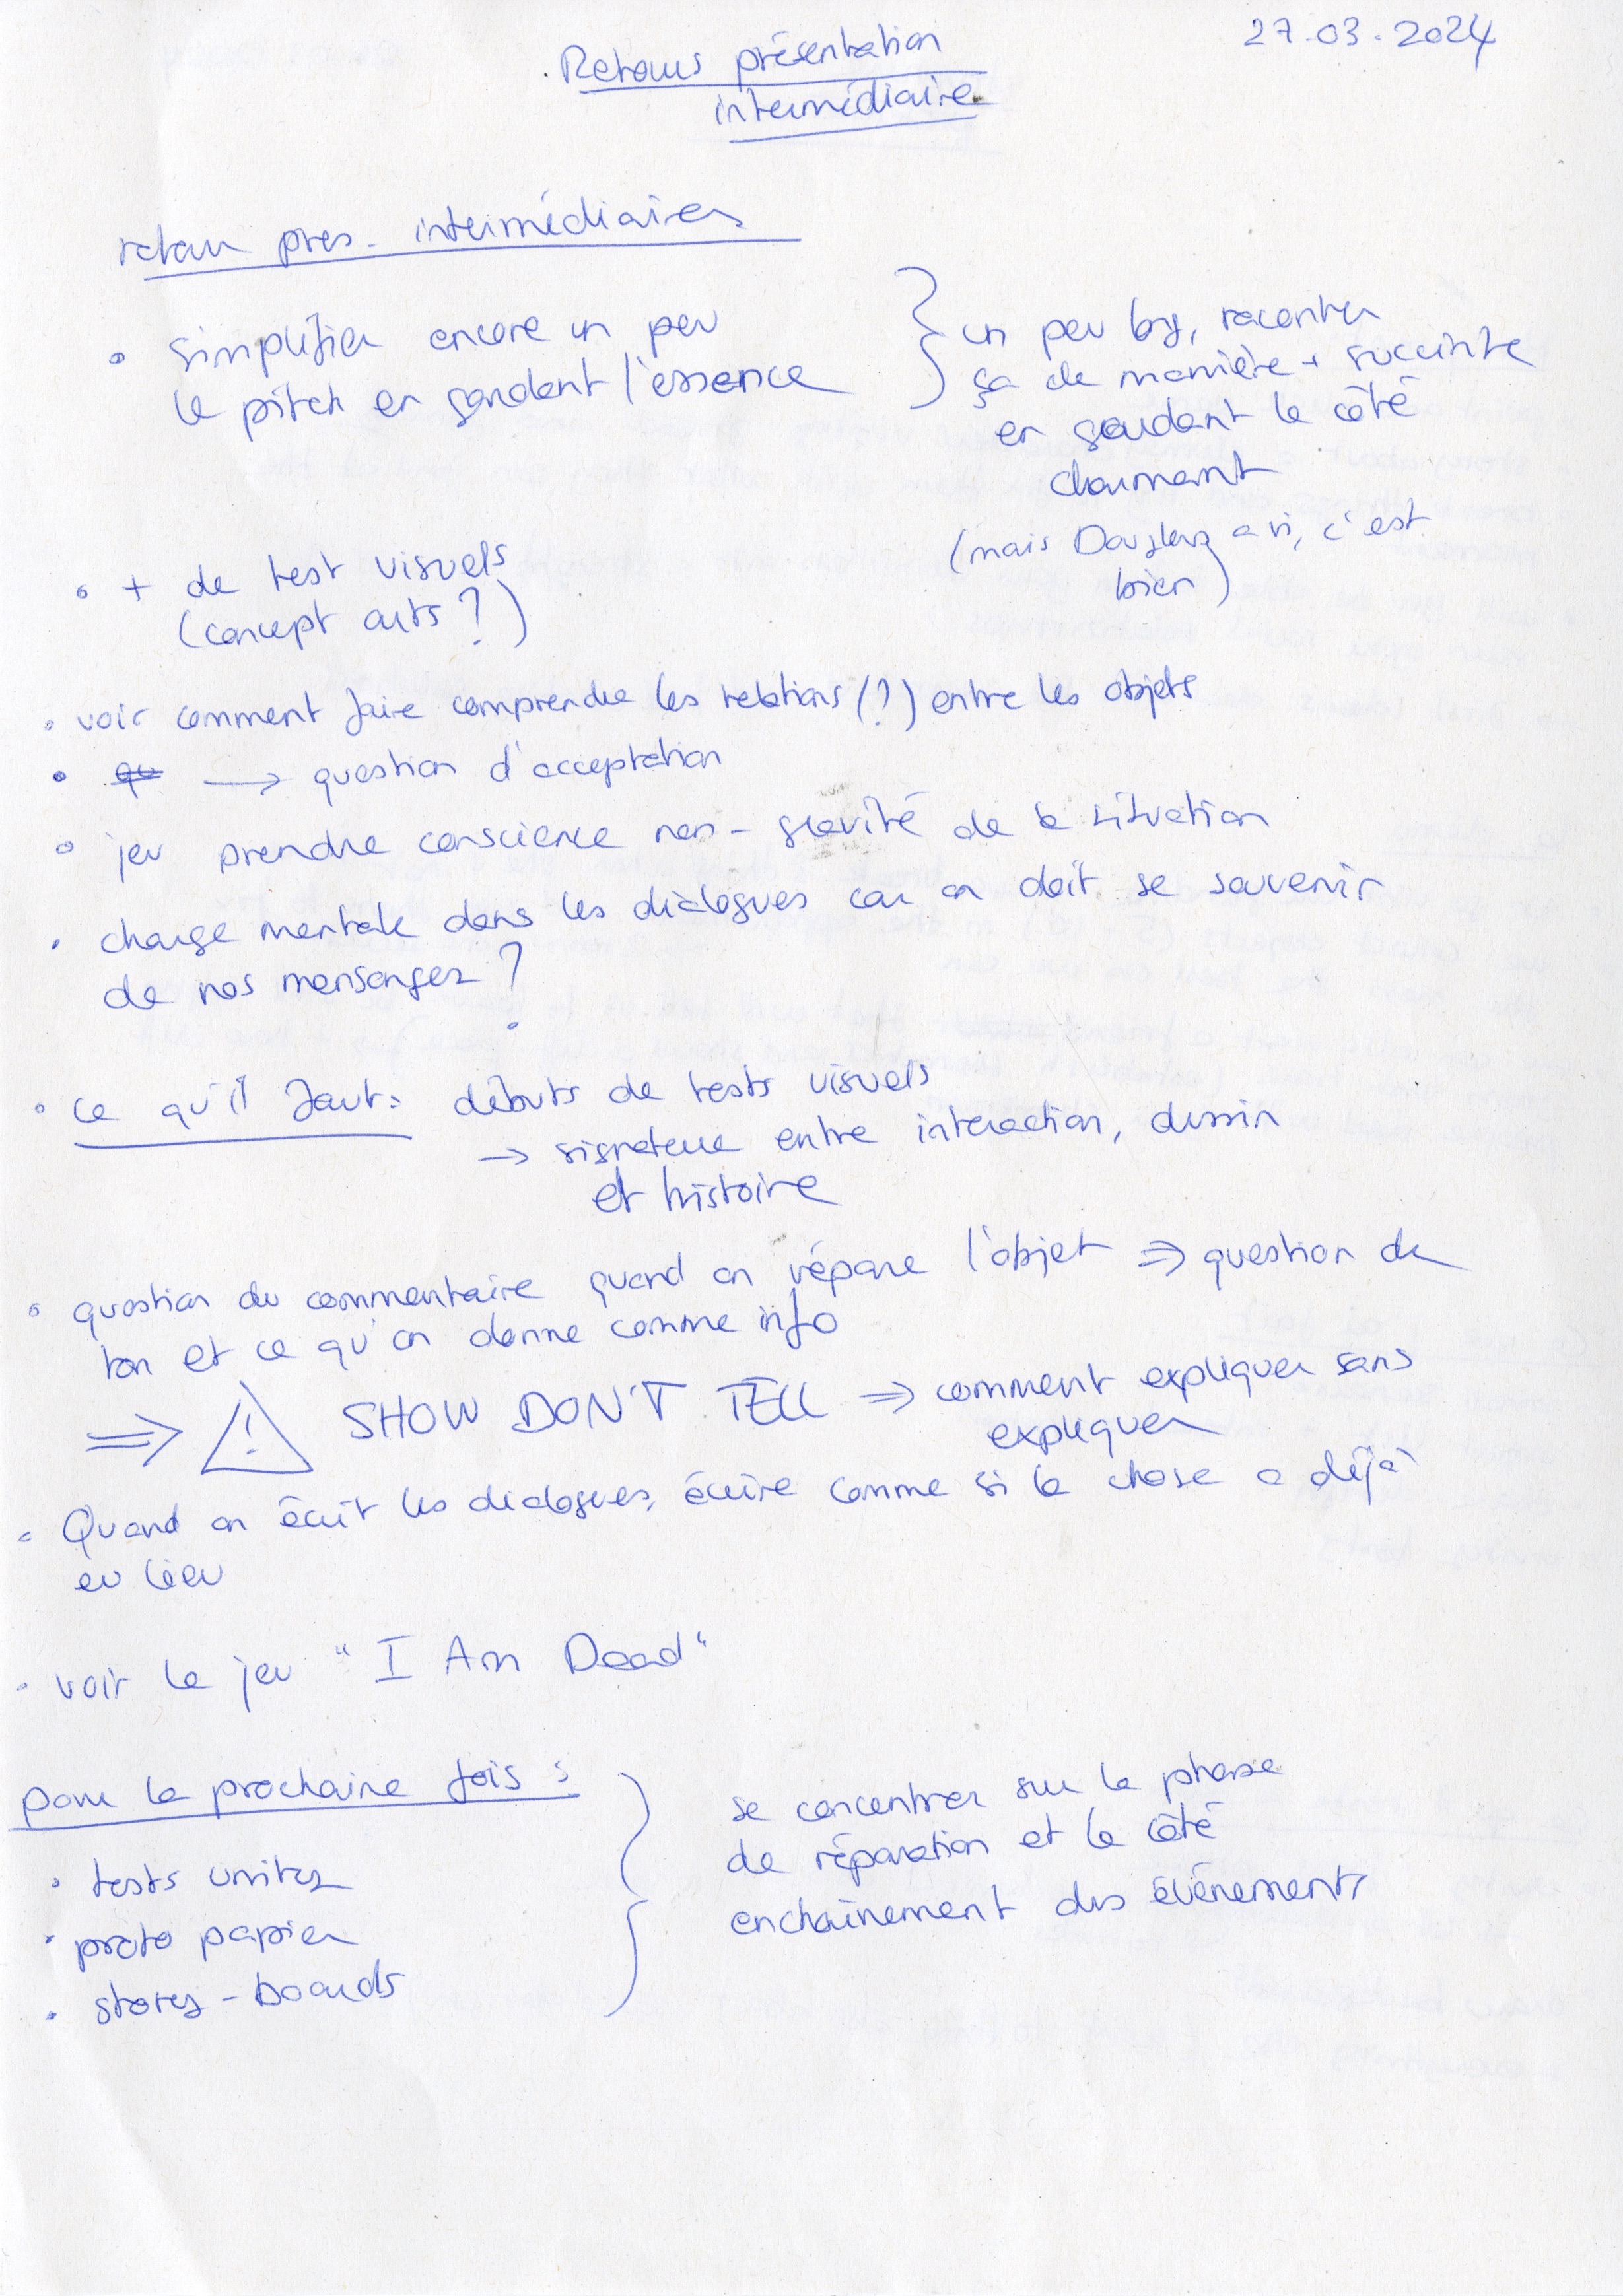 27.03.2024
Retours présentation
intermédiaire
retour pres. intermédiaires
• simplifier encore un peu
le pitch en gardant l'essence
un peu long, raconter
ça de manière + succinte
en gardant le côté
charmant
(mais Douglas a ri, c'est
bien)
• + de test visuels
(concept arts ?)
• voir comment faire comprendre les relations (?) entre les objets
• qu → question d'acceptation
• jeu prendre conscience non-gravité de la situation
• charge mentale dans les dialogues car on doit se souvenir
de nos mensonges ?
• ce qu'il faut : débuts de tests visuels
→ signature entre interaction, dessin
et histoire
• question du commentaire quand on répare l'objet ⇒ question de
ton et ce qu'on donne comme info
⇒ ! SHOW DON'T TELL ⇒ comment expliquer sans
expliquer
• Quand on écrit les dialogues, écrire comme si la chose a déjà
eu lieu
• voir le jeu "I Am Dead"
pour la prochaine fois :
• tests unity
• proto papier
• story-boards
se concentrer sur la phase
de réparation et le côté
enchaînement des événements